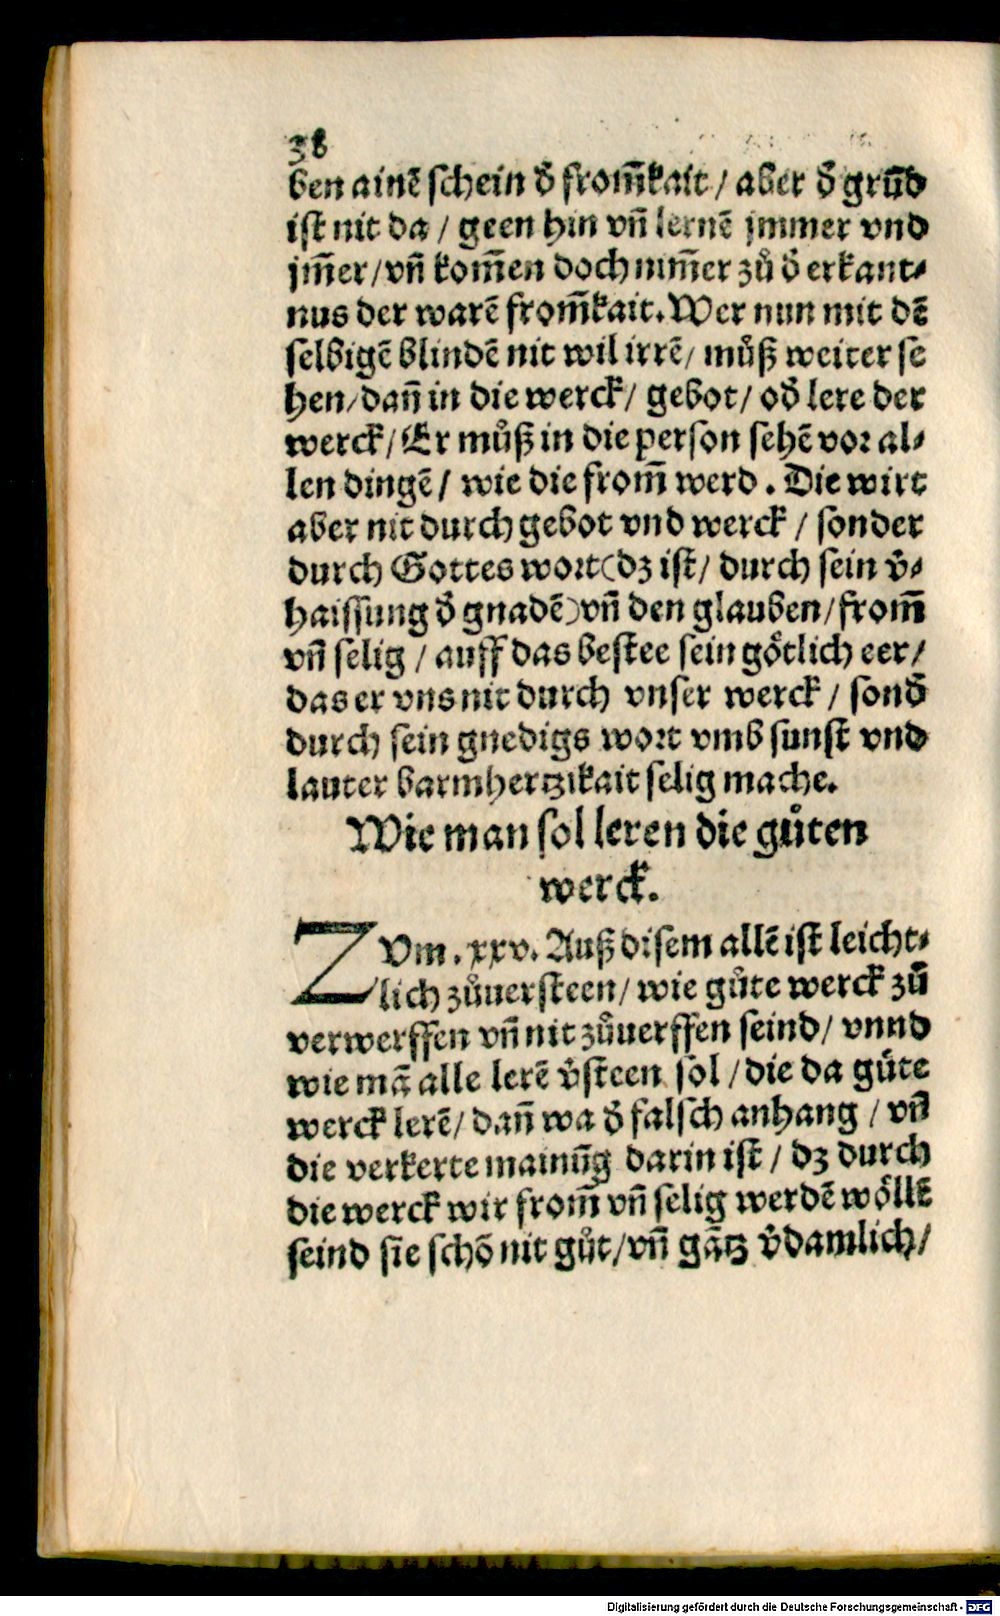 38
ben ainē schein d̄ from̄kait / aber d̄ grūd
ist nit da / geen hin vn̄ lernē jmmer vnd
jm̄er / vn̄ kom̄en doch nim̄er zů d̄ erkant⸗
nus der warē from̄kait. Wer nun mit dē
selbigē blindē nit wil irrē / můß weiter se
hen / dan̄ in die werck / gebot / od̄ lere der
werck / Er můß in die person sehē vor al⸗
len dingē / wie die from̄ werd. Die wirt
aber nit durch gebot vnd werck / sonder
durch Gottes wort (dz ist / durch sein v̄⸗
haissung d̄ gnadē) vn̄ den glauben / from̄
vn̄ selig / auff das bestee sein goͤtlich eer /
das er vns nit durch vnser werck / sond̄
durch sein gnedigs wort vmb sunst vnd
lauter barmhertzikait selig mache.
Wie man sol leren die gůten
werck.
ZVm. xxv. Auß disem allē ist leicht⸗
lich zůuersteen / wie gůte werck zů
verwerffen vn̄ nit zůuerffen seind / vnnd
wie mā alle lerē v̄steen sol / die da gůte
werck lerē / dan̄ wa d̄ falsch anhang / vn̄
die verkerte mainūg darin ist / dz durch
die werck wir from̄ vn̄ selig werdē woͤllē
seind sie schō nit gůt / vn̄ gātz v̄damlich /
Digitalisierung gefördert durch die Deutsche Forschungsgemeinschaft - DFG